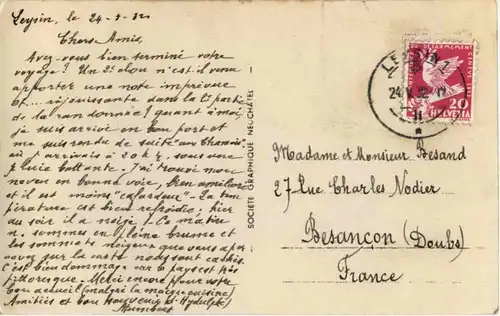 Leysin, le 24-5-32
Chers Amis,
Avez-vous bien terminé votre
voyage? Un 2e chou n'est-il venu
apporter une note imprévue
et... réjouissante dans la 2e partie
de la randonnée? quant à moi,
je suis arrivé en bon port et
me suis rendu de suite aux Chamois
où j'arrivais à 20 h 4, sous une
pluie battante. J'ai trouvé mon
neveu en bonne voie, bien amélioré
et il est moins "cafardeux". La tem
pérature est bien refroidie; hier
au soir il a neigé! Ce matin
n. sommes en pleine brume et
les sommets neigeux que vous aper
cevez sur la carte nous sont cachés.
C'est bien dommage car le pays est très
pittoresque. Merci encore pour votre
bon accueil (malgré la maigre cuisine)
Amitiés et bon souvenir d'
Humbert
SOCIÉTÉ GRAPHIQUE NEUCHÂTEL
LEYSIN
24.V.32
11
DÉSARMEMENT
20
HELVETIA
Madame et Monsieur Besand
27 Rue Charles Nodier
Besançon (Doubs)
France